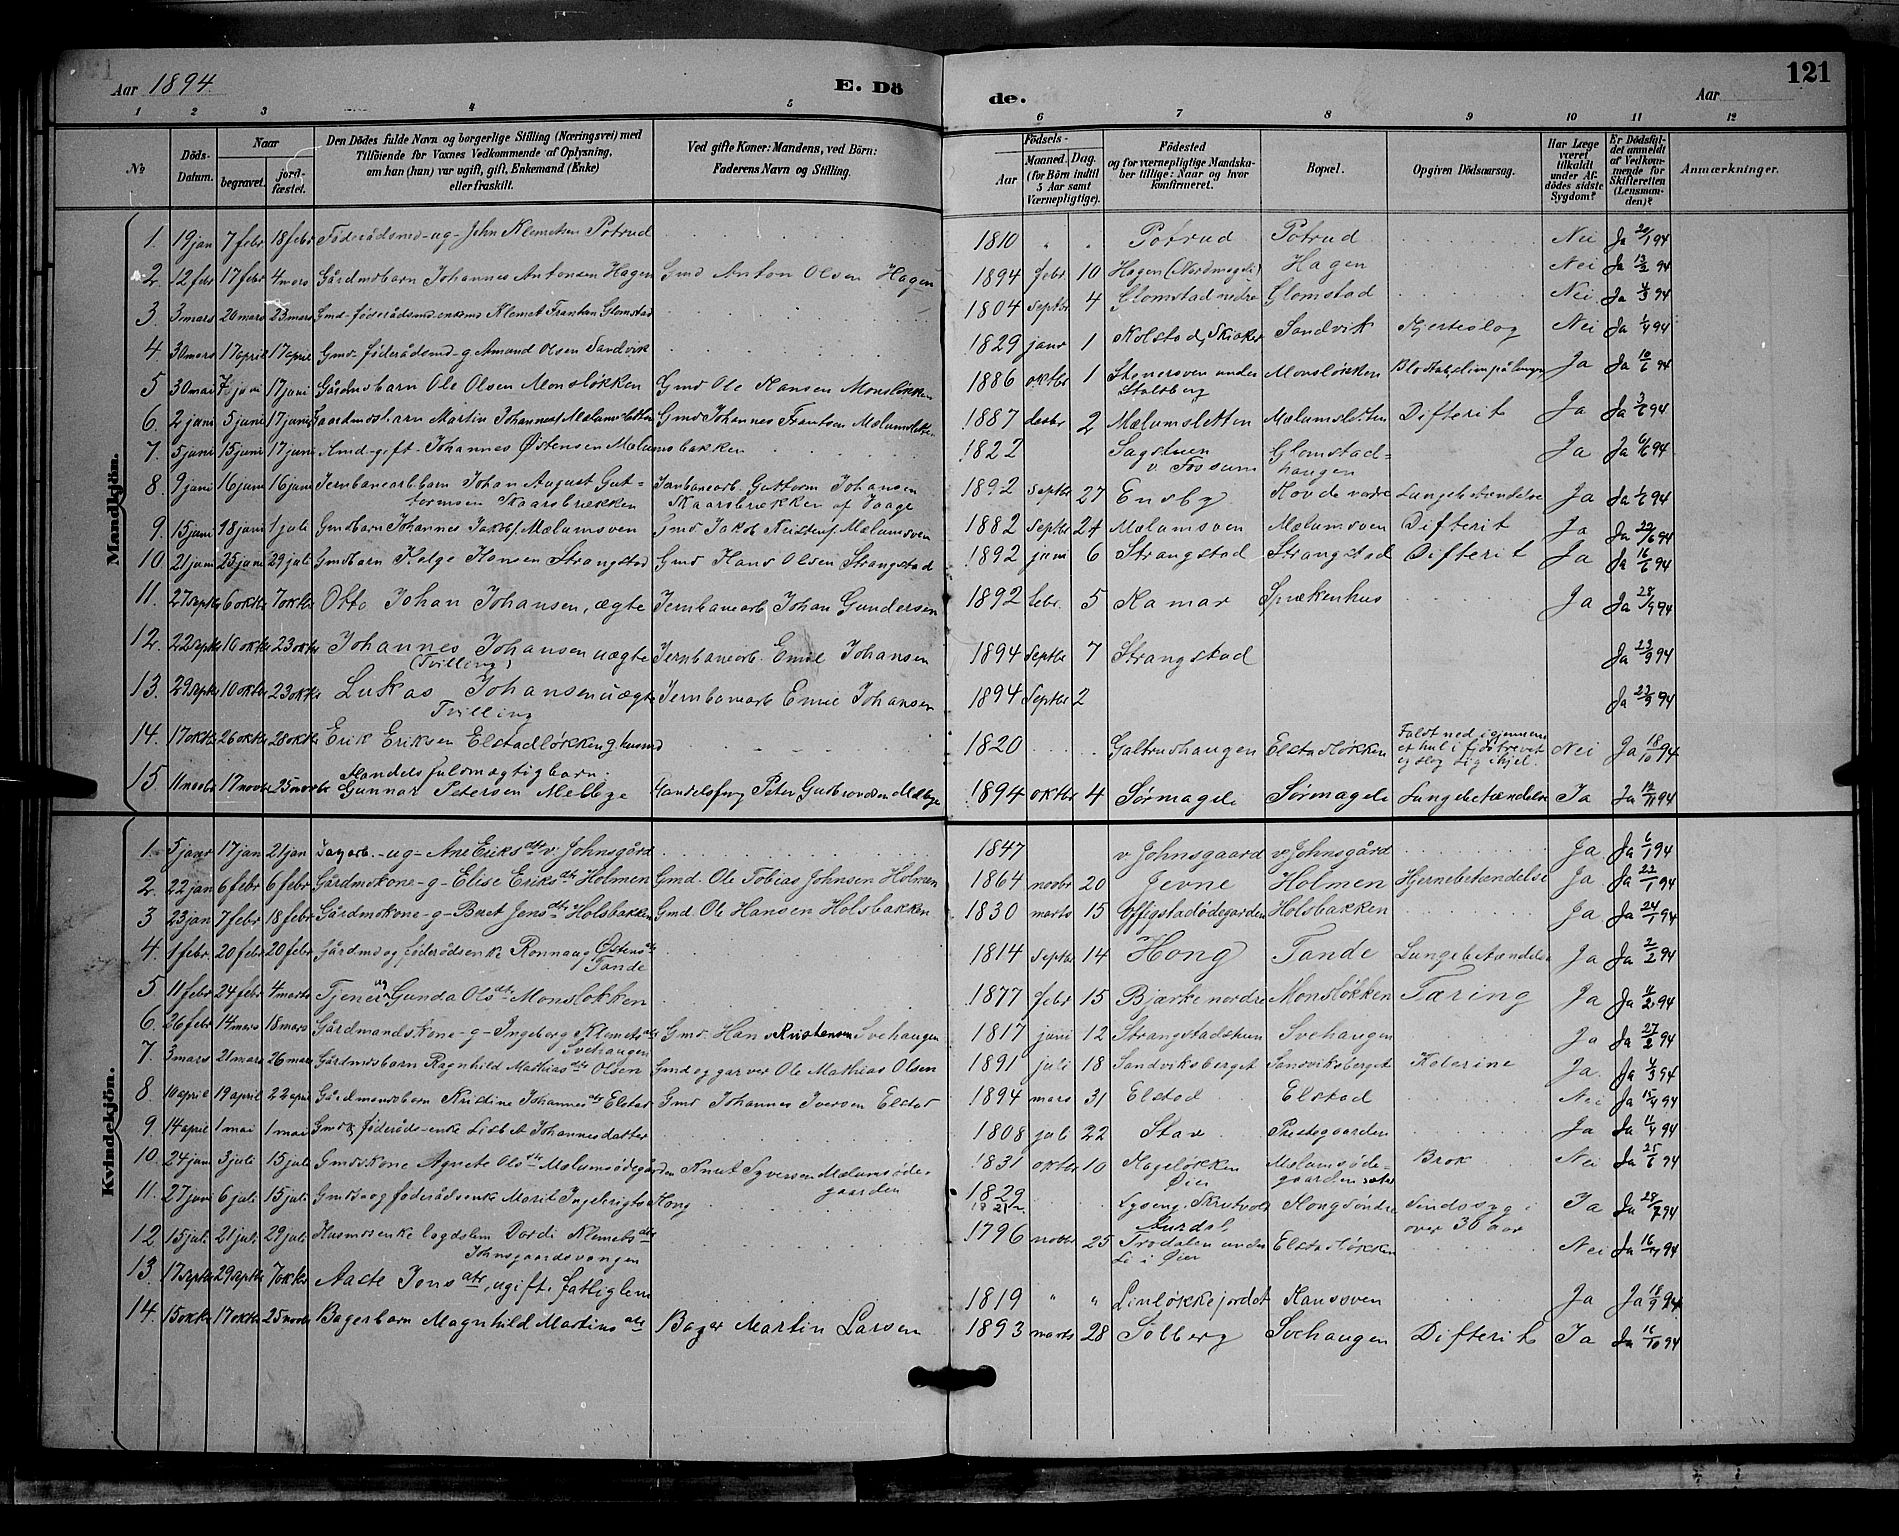 Aar 1894. E. Dö
de. Aar 121
1 2 3 4 5 6 7 8 9 10 11 12
№ Döds-Datum. Naar begravet. jordfæstet. Den Dödes fulde Navn og borgerlige Stilling (Næringsvei) med Tilföiende for Voxnes Vedkommende af Oplysning, om han (hun) var ugift, gift, Enkemand (Enke) eller fraskilt. Ved gifte Koner: Mandens, ved Börn: Faderens Navn og Stilling.
Födsels- Aar Maaned. Dag. (for Börn indtil 5 Aar samt Værnepligtige). Födested og for værnepligtige Mandskaber tillige: Naar og hvor konfirmeret. Bopæl. Opgiven Dödsaarsag. Har Læge været tilkaldt under Afdödes sidste Sygdom? Er Dödsfaldet anmeldt af Vedkommende for Skifteretten (Lensmanden)? Anmærkninger.
Mandkjön.
1. 19 jan 7 febr 18 febr Föderådsmd -ug- John Klemetsen Potrud 1810 " " Potrud Potrud Nei Ja 20/1 94
2. 12 febr 17 febr 4 mars Gårdmdsbarn Johannes Antonsen Hagen Gmd Anton Olsen Hagen 1894 febr 10 Hagen Hagen Nei Ja 13/2 94
3. 3 mars 20 mars 23 mars Gmd-föderådsmd enkemd Klemet Frantsen Glomstad 1804 septbr 4 Glomstad nedre Glomstad Nei Ja 94
4. 30 mars 17 april 17 april Gmd-föderådsmd -g Amund Olsen Sandvik 1829 janr 1 Kolstad, Skiaker Sandvik Hjerteslag Nei Ja 1/4 94
5 30 mai 7 juni 17 juni Gårdmdsbarn Ole Olsen Monsløkken Gmd Ole Hansen Monsløkken 1886 oktbr 1 Stenersven under Stalsberg Monsløkken Ja Ja 94
6. 2 juni 5 juni 17 juni Gaardmdsbarn Martin Johannes Mælumsletten Gmd Johannes Frantsen Mælumsletten 1887 desbr 2 Mælumsletten Mælumsletten Difterit Ja Ja 3/6 94
7. 5 juni 15 juni 17 juni -gift- Johannes Østensen Mælumsbakken 1822 Sagstuen v. Fossum Glomstadhaugen Ja Ja 94
8. 9 juni 16 juni 16 juni Jernbanearb.barn Johan August Guttormsen Skaarsbrækken Jernbanearb. Guttorm Johansen Skaarsbrækken af Vaage 1892 septbr 27 Ensby Hovde nordre Lungebetændelse Ja Ja 94
9. 15 juni 18 juni 1 juli Gmdbarn Johannes Jakobs Mælumsven Gmd Jakob Kristens Mælumsven 1882 septbr 24 Mælumsven Mælumsven Difterit Ja Ja 22/6 94
10. 21 juni 25 juni 29 juli Gmdbarn Helge Hansen Strangstad Gmd Hans Olsen Strangstad 1892 juni 6 Strangstad Strangstad Difterit Ja Ja 94
11. 27 septbr 6 oktbr 7 oktbr Otto Johan Johansen, ægte Jernbanearb. Johan Gundersen 1892 febr. 5 Hamar Sprækenhus Ja Ja 28/9 94
12. 22 septbr 16 oktbr 23 oktbr Johannes Johansen uægte (Tvilling) Jernbanearb. Emil Johansen 1894 septbr 7 Strangstad Ja 23/9 94
13. 29 septbr 10 oktbr 23 oktbr Lukas Johansen uægte Tvilling Jernbanearb Emil Johansen 1894 septbr 2 Ja 94
14. 17 oktbr 26 oktbr 28 oktbr Erik Eriksen Elstadløkken g. husmd 1820 Galtrudhaugen Elstadløkken Faldt ned igjennem et hul i fjöstrevet og slog sig ihjel. Nei Ja 18/10 94
15. 11 novbr 17 novbr 25 novbr Handelsfuldmægtigbarn. Gunnar Petersen Melbye Handelsfmg Peter Gulbrandsen Melbye 1894 oktbr 4 Sørmageli Sørmageli Lungebetændelse Ja Ja 12/11 94
Kvindekjön.
1. 5 janr 17 jan 21 jan -ug- Ane Eriksdtr v. Johnsgård 1847 v Johnsgaard v Johnsgård Ja Ja 6/1 94
2. 22 jan 6 febr 6 febr Gårdmdskone -g- Elise Eriksdtr Holmen Gmd. Ole Tobias Johnsen Holmen 1864 novbr 20 Jevne Holmen Hjernebetændelse Ja Ja 22/1 94
3 23 jan 7 febr 18 febr Gårdmdskone -g- Beret Jensdtr Holsbakken Gmd. Ole Hansen Holsbakken 1830 marts 15 Offigstadødegarden Holsbakken Ja Ja 24/1 94
4. 1 febr. 20 febr 20 febr Gårdmd og föderådsenke Ronnaug Østensdtr Tande 1814 septbr 14 Hong Tande Lungebetændelse Ja Ja 2/2 94
5 11 febr 24 febr 4 marts Tjener ug Gunda Olsdtr Monsløkken 1877 febr 15 Bjerke nordre Monsløkken Tæring Ja Ja 94
6. 26 febr 14 mars 18 mars Gårdmandskone -g- Ingeborg Klemetsdtr Svehaugen Gmd. Hans Kristensen Svehaugen 1817 juni 12 Strangstadstuen Svehaugen Ja Ja 27/2 94
7. 3 mars 21 mars 26 mars Gårdmdsbarn Ragnhild Mathiasdtr Olsen Gmd og garver Ole Mathias Olsen 1891 juli 18 Sandviksberget Sandviksberget Kolerine Ja. Ja 94
8 10 april 19 april 22 april Gårdmandsbarn Kristine Johannesdtr Elstad Gmd Johannes Iversen Elstad 1894 mars 31 Elstad Elstad Nei Ja 94
9. 14 april 1 mai 1 mai Gmd & föderåds-enke Lisbet Johannesdatter 1808 juli 22 Stav Prestegaarden Ja Ja 94
10. 24 juni 3 juli 15 juli Gmdskone Agnete Olsdtr Mælumsødegården Knut Syversen Mælumsødegaarden 1831 oktbr 10 Hageløkken Øier Mælumsødegaarden Brok Nei Ja 25/6 94
11. 27 juni 6 juli 15 juli Gmds og föderådsenke Marit Ingebrigtsd Hong 1829 Lyseng, Hong søndre Sindssyg i over 30 aar Ja Ja 94
12 15 juli 21 juli 29 juli Husmdsenke lægdslem Dordi Klemetsdtr Johnsgaardsvangen 1796 novbr 25 Trodalen under Li i Øier Elstadløkken Nei Ja 94
13. 17 septbr 29 septbr 7 oktbr Aaste Jonsdtr, ugift, fattiglem 1819 " " Linløkkejordet Hansoven Ja Ja 18/9 94
14. 15 oktbr 17 oktbr 25 novbr Bagerbarn Magnhild Martinsdtr Bager Martin Larsen 1893 marts 28 Solberg Svehaugen Difterit Ja Ja 16/10 94